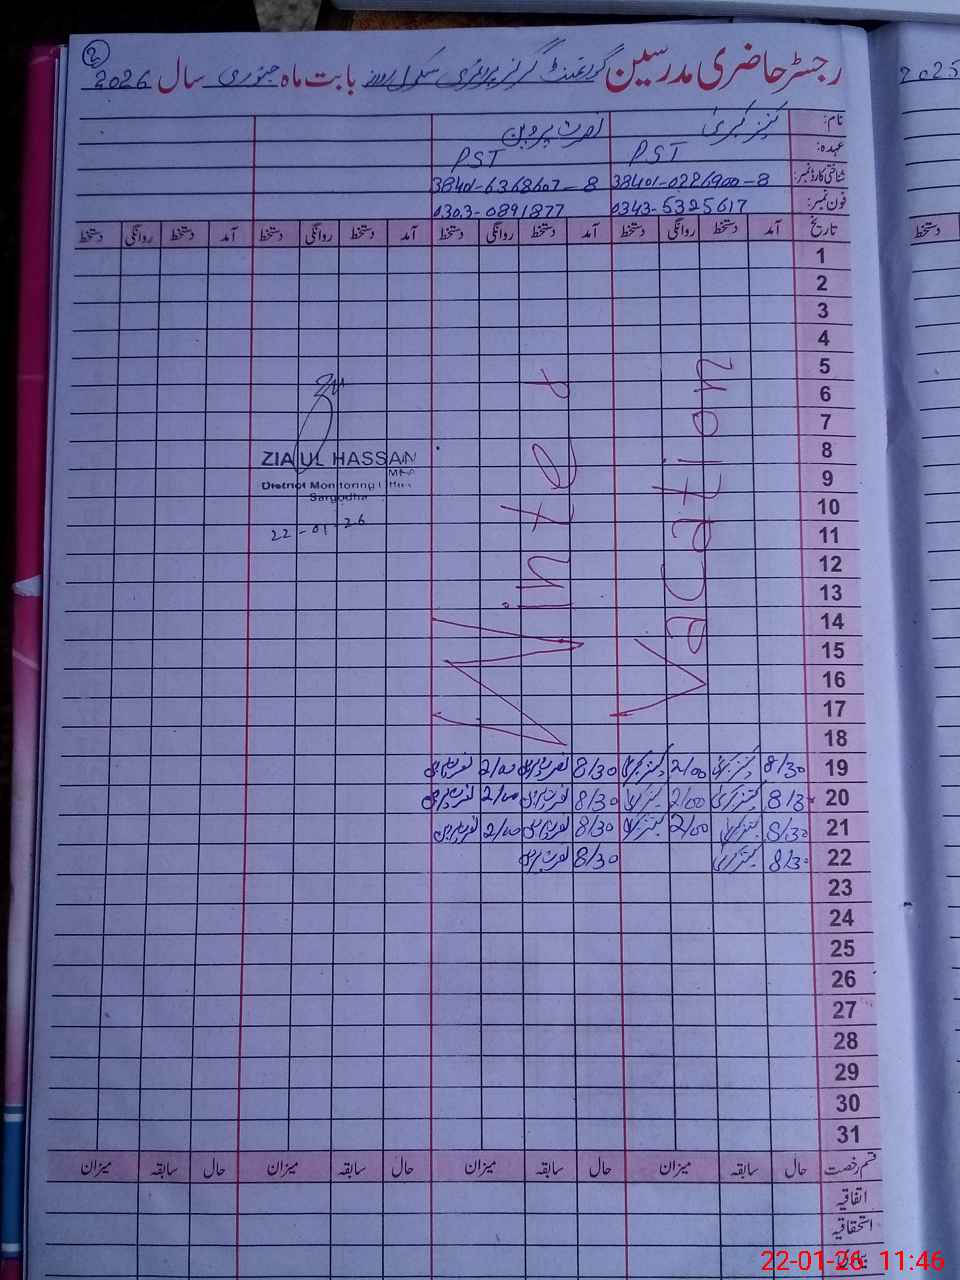 2
رجسٹر حاضری مدرسین گورنمنٹ گرلز پرائمری سکول بابت ماہ جنوری سال 2026
2025
نام: کنیز کبریٰ نصرت پروین
عہدہ: PST PST
شناختی کارڈ نمبر: 38401-0226900-8 38401-6368607-8
فون نمبر: 0343-5325617 0303-0891877
تاریخ آمد دستخط روانگی دستخط آمد دستخط روانگی دستخط آمد دستخط روانگی دستخط آمد دستخط روانگی دستخط
دستخط
1
2
3
4
5
6
7
8
9
10
11
12
13
14
15
16
17
18
Winter
Vacation
ZIA UL HASSAN
District Monitoring
Sargodha
22-01-26
19 8/30 کنیز کبریٰ 2/00 کنیز کبریٰ 8/30 نصرت پروین 2/00 نصرت پروین
20 8/30 کنیز کبریٰ 2/00 کنیز کبریٰ 8/30 نصرت پروین 2/00 نصرت پروین
21 8/30 کنیز کبریٰ 2/00 کنیز کبریٰ 8/30 نصرت پروین 2/00 نصرت پروین
22 8/30 کنیز کبریٰ 8/30 نصرت پروین
23
24
25
26
27
28
29
30
31
قسم رخصت حال سابقہ میزان حال سابقہ میزان حال سابقہ میزان حال سابقہ میزان
اتفاقیہ
استحقاقیہ
22-01-26 11:46